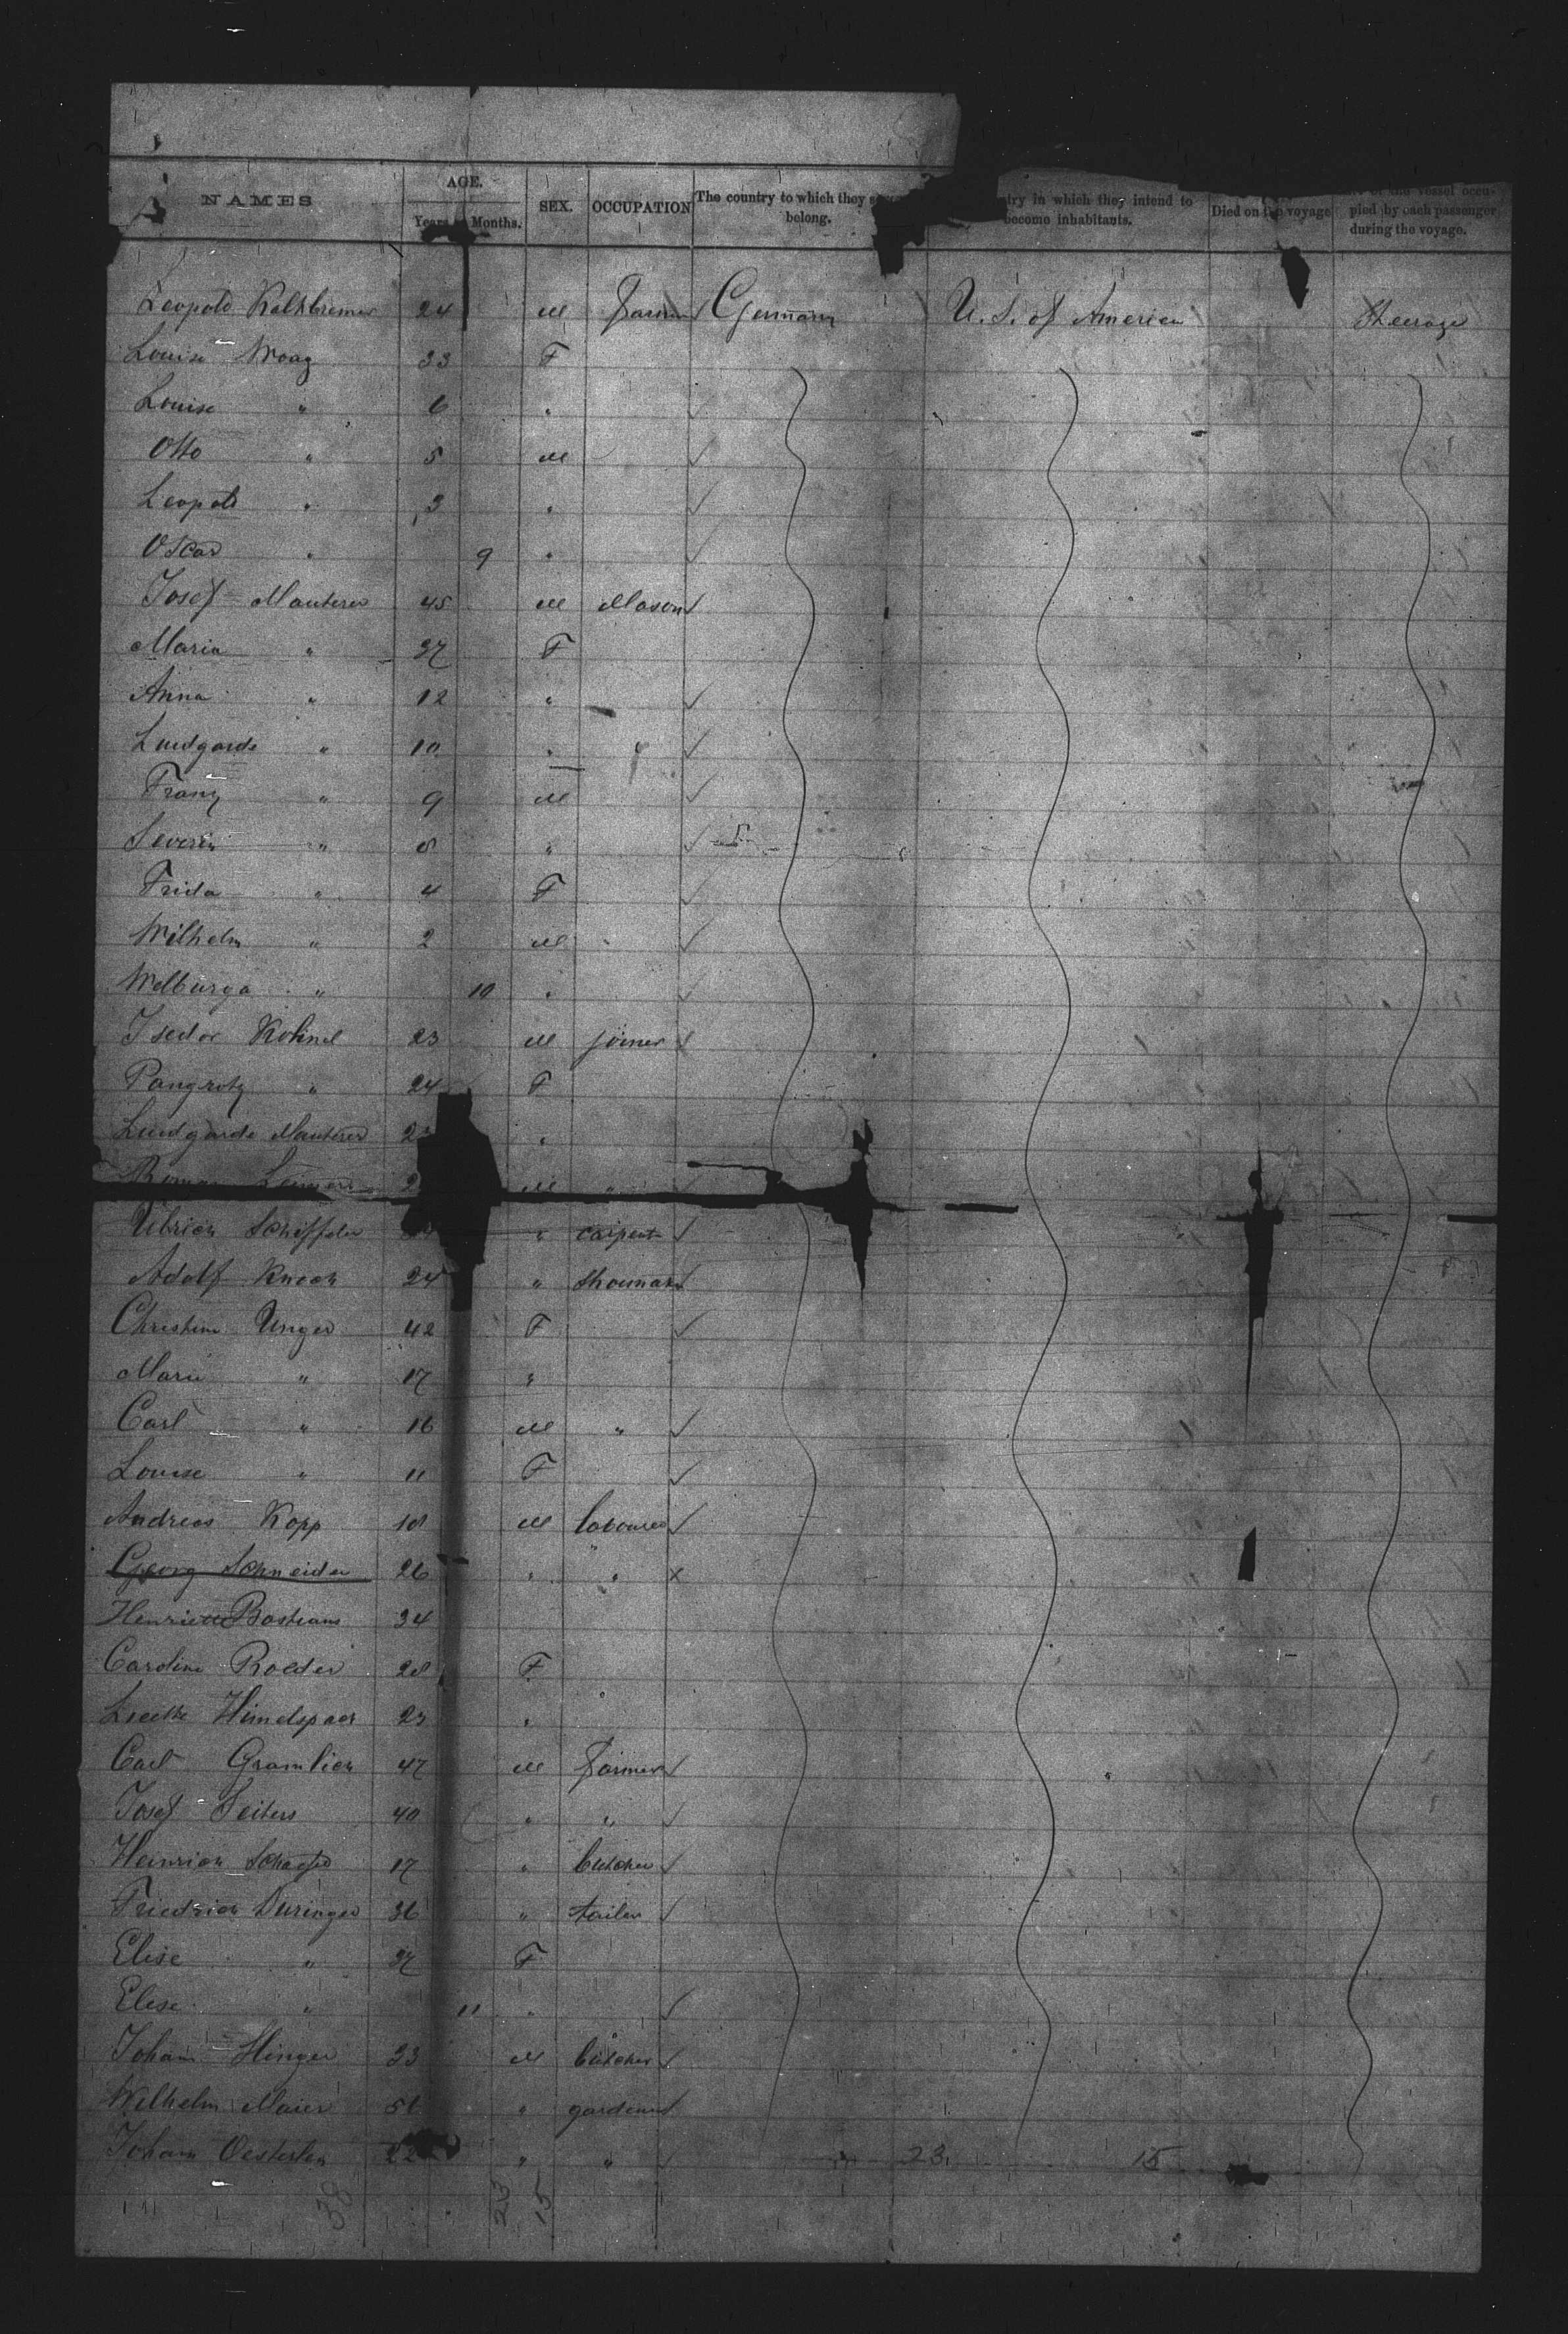 NAMES AGE. Years Months. SEX. OCCUPATION The country to which they belong. try in which they intend to become inhabitants. Died on the voyage of the vessel occupied by each passenger during the voyage.
Leopold Kalkbrenner 24 M Farmer Germany U. S. of America Steerage
Louise Woag 33 F
Louise " 6 "
Otto " 5 M
Leopold " 3 "
Oscar " 9 "
Josef Mauterer 45 M Mason
Maria " 37 F
Anna " 12 "
Luidgarde " 10 "
Franz " 9 M
Severin " 8 "
Frida " 4 F
Wilhelm " 2 M
Welburga " 10 "
Isedor Kohnel 23 M joiner
Pangratz " 24 F
Luidgarde Mauterer "
Roman M "
Ulrich Schiffeler " carpent
Adolf Knech 24 " shoemak
Christine Unger 42 F
Marie " 17 "
Carl " 16 M "
Louise " 11 F
Andreas Kopp 18 M labourer
Georg Schneider 26 " " x
Henriette Bastians 34
Caroline Roeder 28 F
Lisette Himelspaer 23 "
Carl Gramlich 47 M farmer
Josef Seiters 40 " "
Heinrich Schaefer 17 " butcher
Friedrich Duringer 36 " tailor
Elise " 37 F
Elise " 11 "
Johann Hinger 33 M butcher
Wilhelm Maier 56 " gardener
Johann Oesterlen 22 " " 23 15
38 23 15